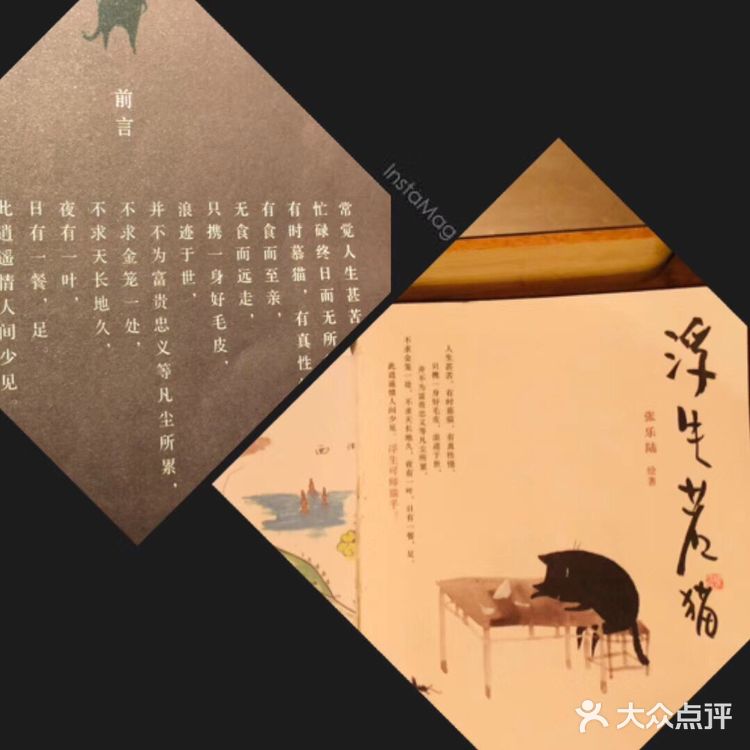 前言
常觉人生甚苦
忙碌终日而无所
有时慕猫，有真性
有食而至亲，
无食而远走，
只携一身好毛皮，
浪迹于世，
并不为富贵忠义等凡尘所累，
不求金笼一处，
不求天长地久，
夜有一叶，
日有一餐，足。
此逍遥情人间少见。
InstaMag
浮生若猫
张乐陆 绘著
人生甚苦，有时慕猫，有真性情，
只携一身好毛皮，浪迹于世，
并不为富贵忠义等凡尘所累，
不求金笼一处，不求天长地久，夜有一叶，日有一餐，足，
此逍遥情人间少见。浮生可师猫乎。
大众点评